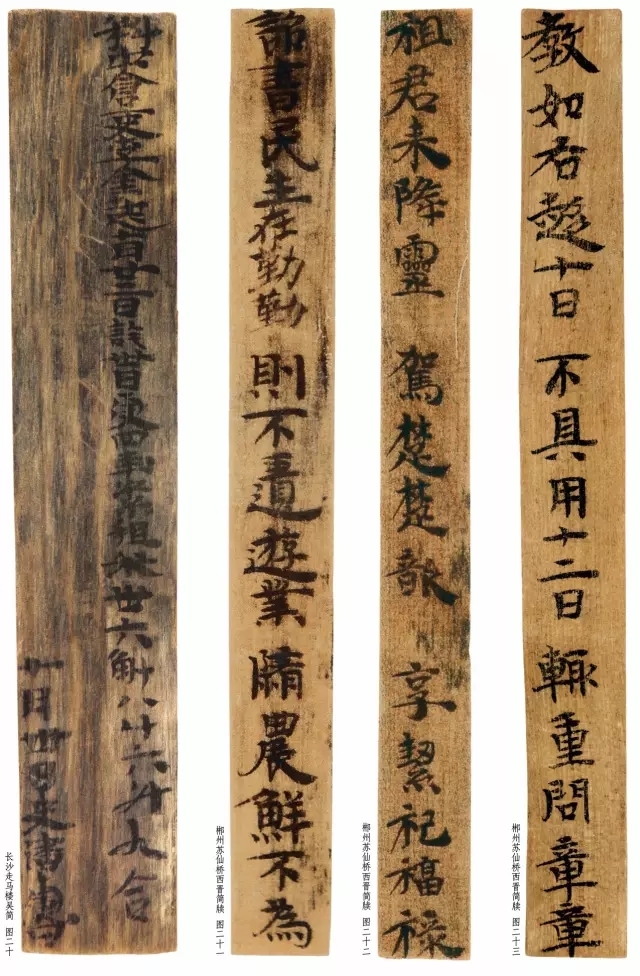 倉吏 金 起 月廿三日訖卅日受田 租米卅六斛八斗六升九合
月卅日
长沙走马楼吴简 图二十
詔書民生在勤勤 則不匱遊業 隋農鮮不為
郴州苏仙桥西晋简牍 图二十一
祖君未降靈 駕楚楚歆 享絜祀福祿
郴州苏仙桥西晋简牍 图二十二
教如右愆十日 不具用十二日 輒重問章章
郴州苏仙桥西晋简牍 图二十三